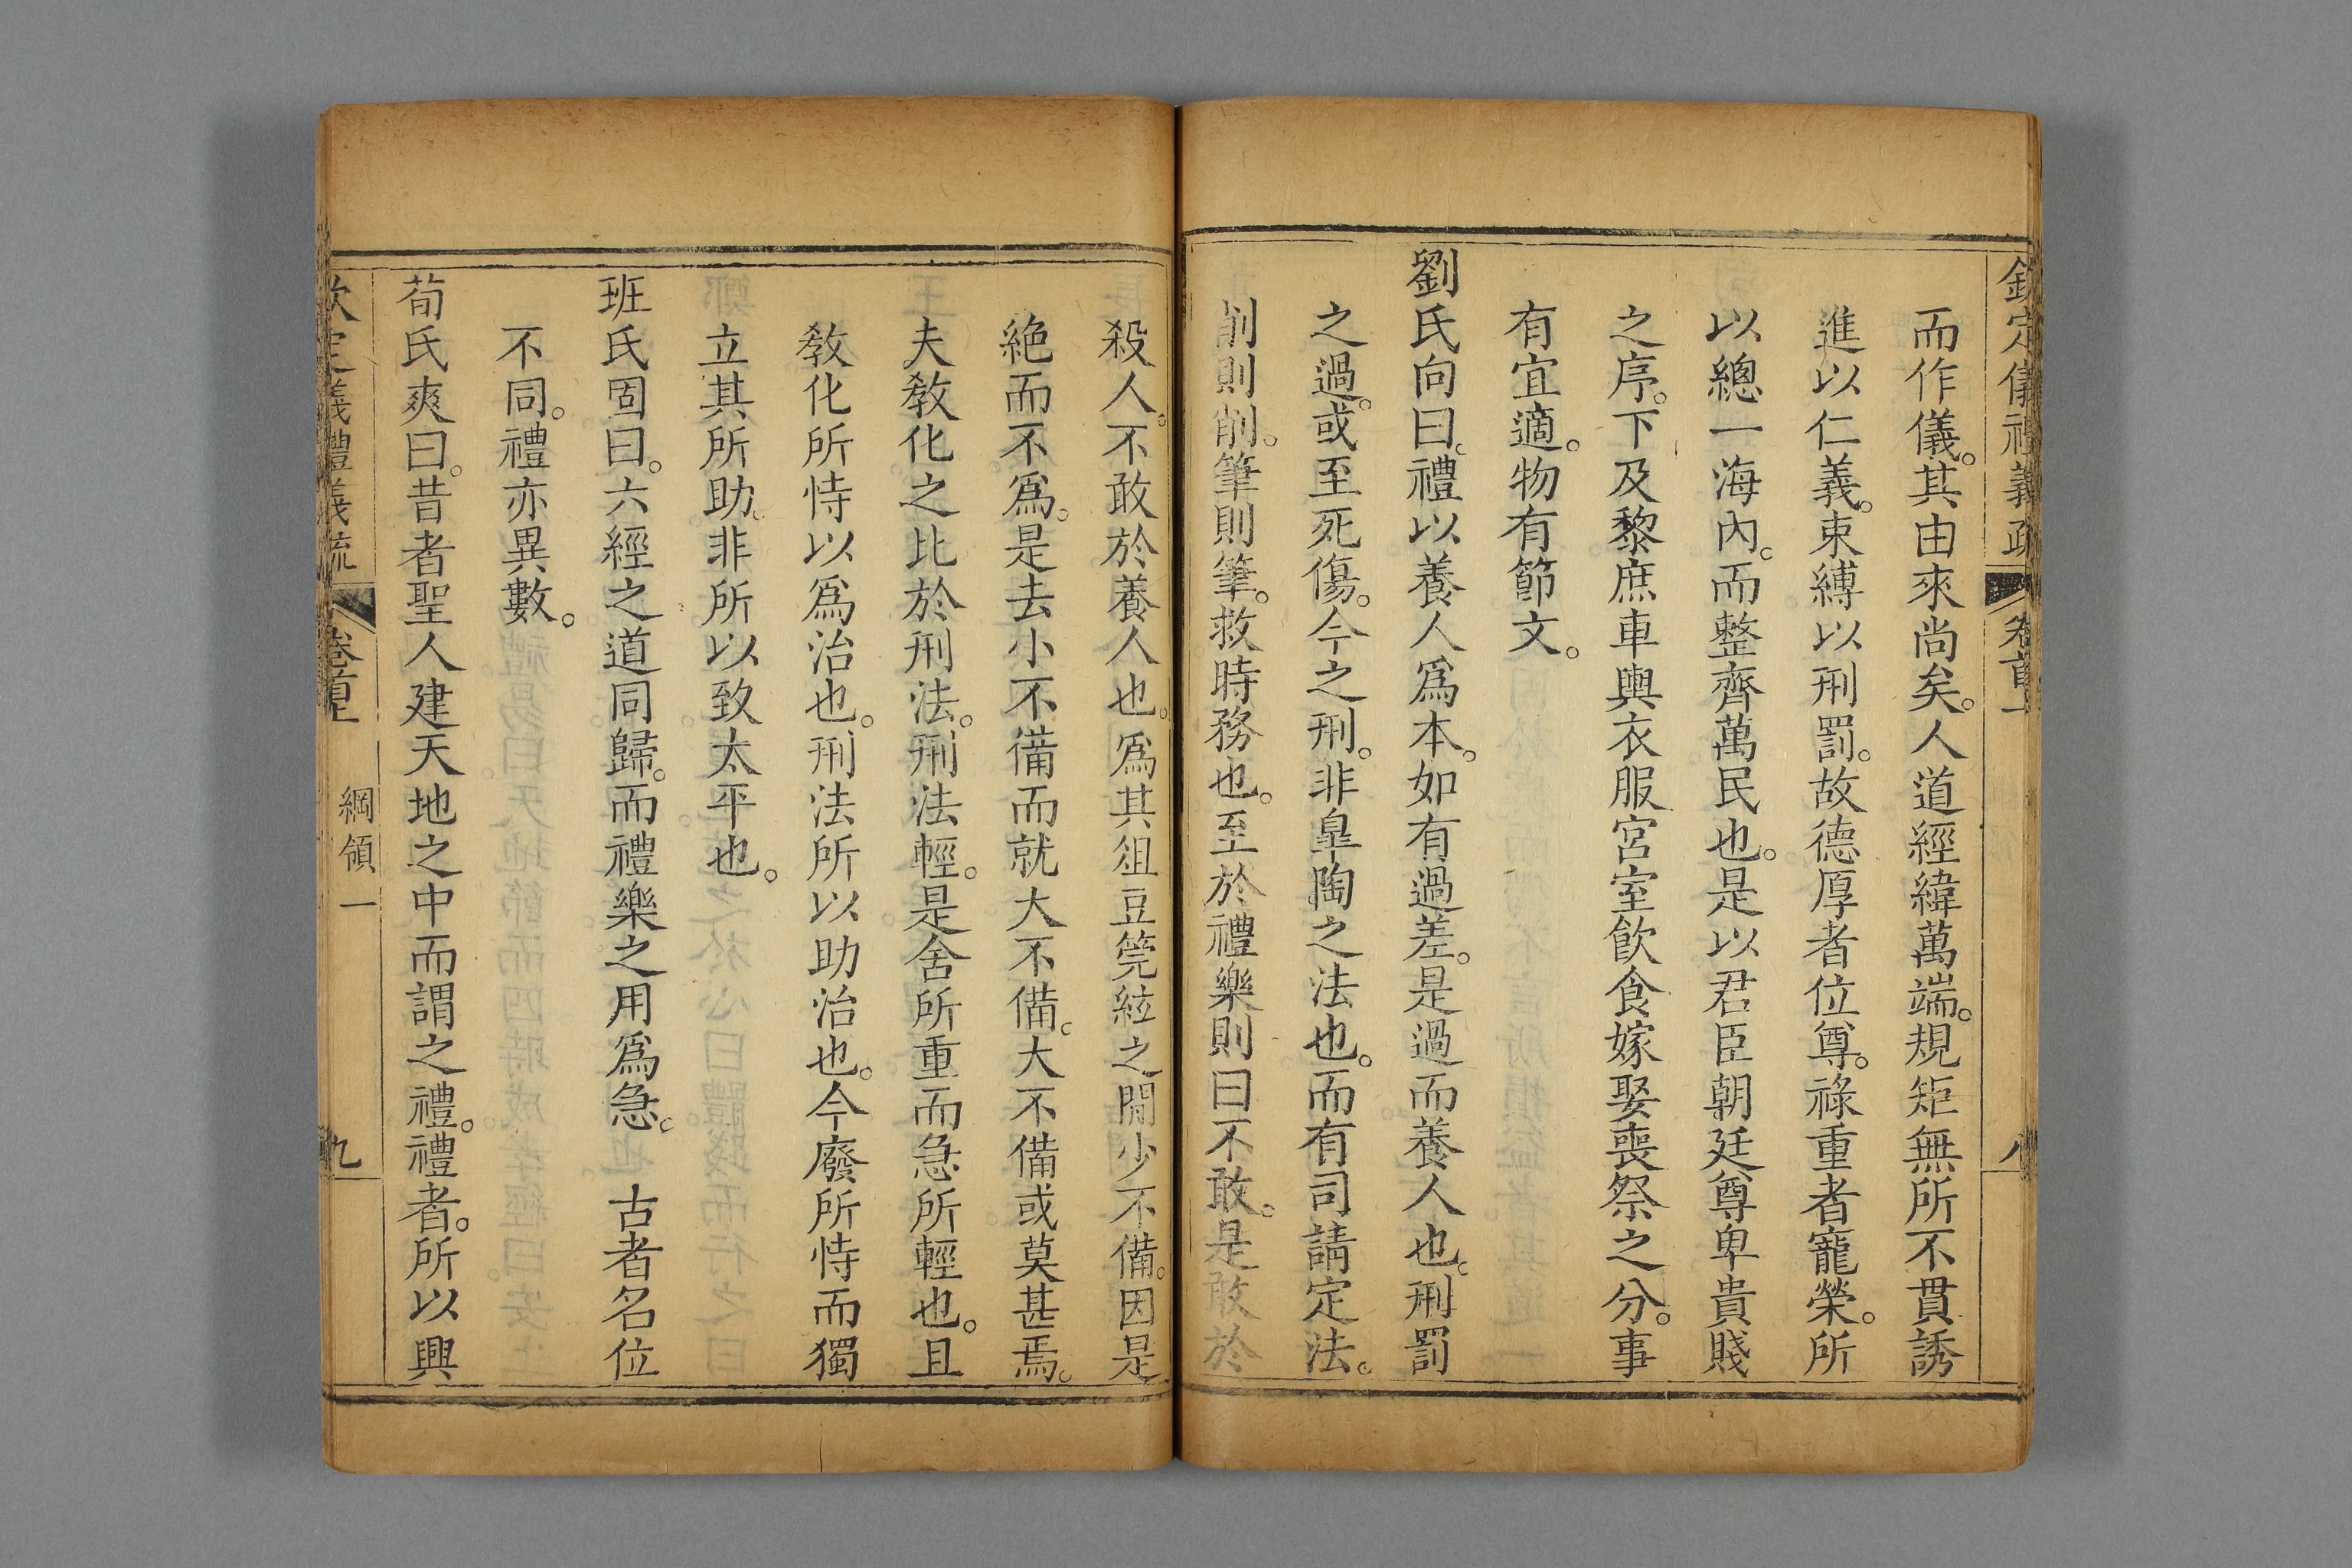 欽定儀禮義疏 卷首上 八
而作儀。其由來尚矣。人道經緯萬端。規矩無所不貫誘
進以仁義。束縛以刑罰。故德厚者位尊。祿重者寵榮。所
以總一海內。而整齊萬民也。是以君臣朝廷尊卑貴賤
之序。下及黎庶車輿衣服宮室飲食嫁娶喪祭之分。事
有宜適。物有節文。
劉氏向曰。禮以養人爲本。如有過差。是過而養人也。刑罰
之過。或至死傷。今之刑。非臯陶之法也。而有司請定法。
削則削。筆則筆。救時務也。至於禮樂則曰不敢。是敢於
殺人。不敢於養人也。爲其俎豆筦絃之閒少不備。因是
絶而不爲。是去小不備而就大不備。大不備或莫甚焉。
夫敎化之比於刑法。刑法輕。是舍所重而急所輕也。且
敎化所恃以爲治也。刑法所以助治也。今廢所恃而獨
立其所助。非所以致太平也。
班氏固曰。六經之道同歸。而禮樂之用爲急。 古者名位
不同。禮亦異數。
荀氏爽曰。昔者聖人建天地之中而謂之禮。禮者。所以興
欽定儀禮義疏 卷首上 綱領一 九